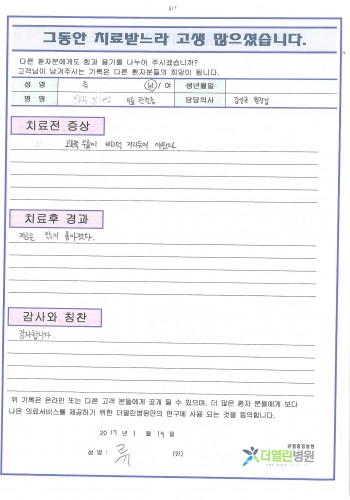 그동안 치료받느라 고생 많으셨습니다.
다른 환자분에게도 힘과 용기를 나누어 주시겠습니까?
고객님이 남겨주시는 기록은 다른 환자분들의 희망이 됩니다.
성 명 남 / 여 생년월일
병 명 무릎 관절증 담당의사 김성균 원장님
치료전 증상
오른쪽 무릎이
치료후 경과
지금은 많이 좋아졌다.
감사와 칭찬
감사합니다.
위 기록은 온라인 또는 다른 고객 분들에게 공개 될 수 있으며, 더 많은 환자 분들에게 보다
나은 의료서비스를 제공하기 위한 더열린병원만의 연구에 사용 되는 것을 동의합니다.
2017 년 1 월 19 일
성 명 : 류 (인)
관절중점병원
더열린병원